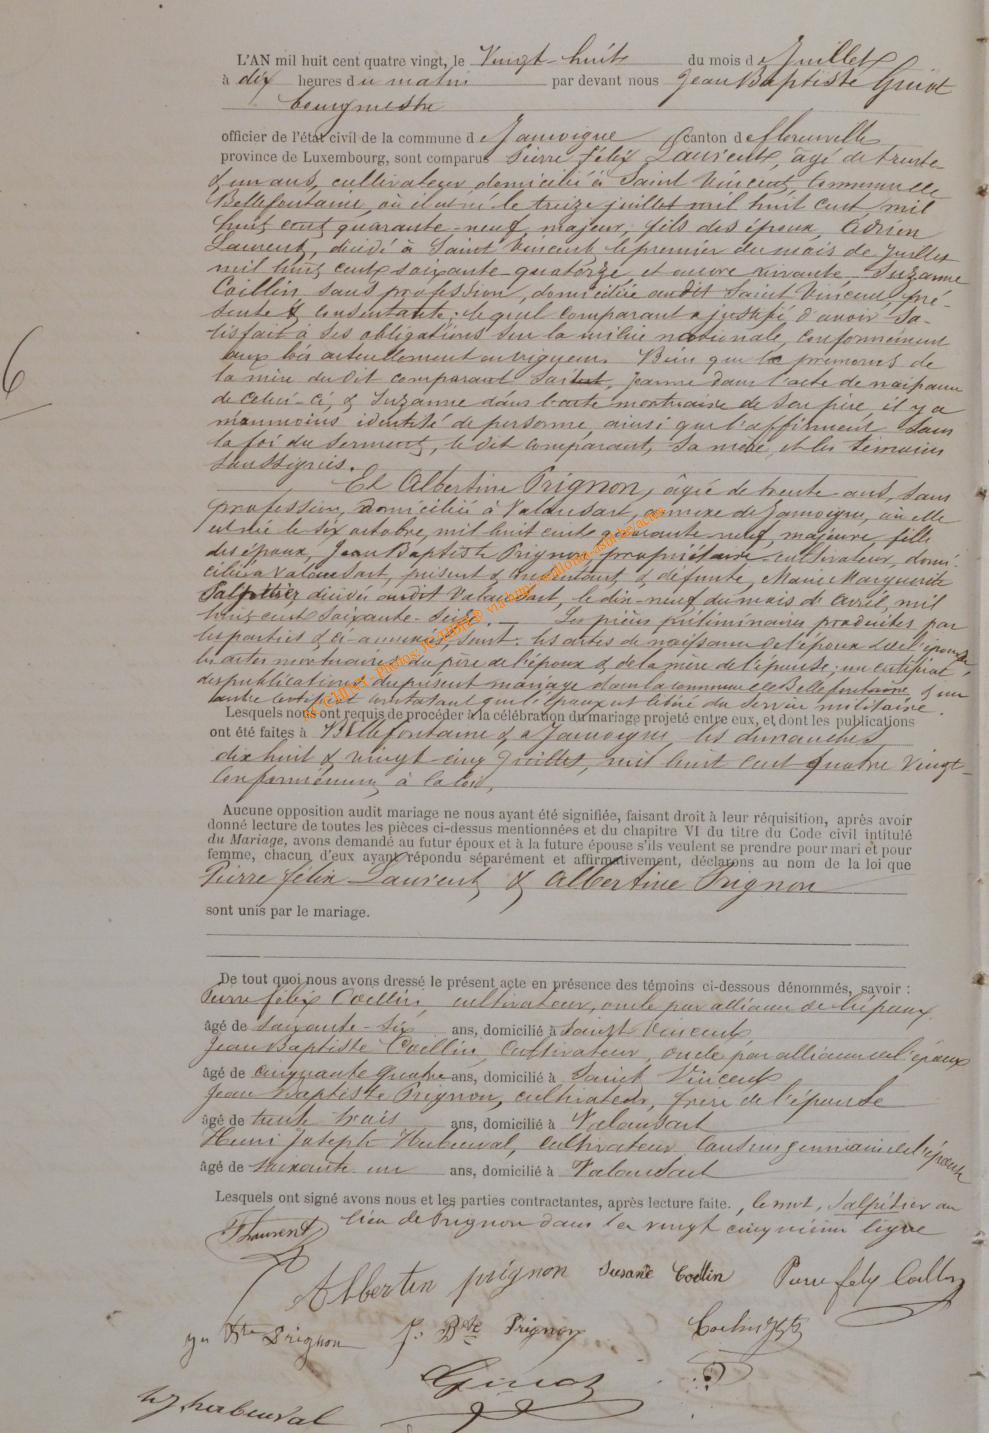 L'AN mil huit cent quatre vingt, le Vingt-huit du mois de Juillet
à dix heures du matin par devant nous Jean Baptiste Guiot
bourgmestre
officier de l'état civil de la commune de Jamoigne Canton de Florenville
province de Luxembourg, sont comparus Pierre félix Laurent, âgé de trente
& un ans, cultivateur domicilié à Saint Vincent, Commune de
Bellefontaine, où il est né le treize juillet mil huit cent mil
huit cent quarante-neuf, majeur, fils des époux, Adrien
Laurent, décédé à Saint Vincent, le premier du mois de Juillet
mil huit cent soixante-quatorze et encore vivante Suzanne
Coillin sans profession, domiciliée audit Saint Vincent pré-
sente & consentante; lequel comparant a justifié d'avoir sa-
tisfait à ses obligations sur la milice nationale, conformément
aux lois actuellement en vigueur. Bien que le prénoms de
la mère du dit comparant soit, Jeanne dans l'acte de naissance
de celui-ci, & Suzanne dans l'acte mortuaire de son père, il y a
néanmoins identité de personne, ainsi que l'affirment sous
la foi du serment, le dit comparant, sa mère, et les témoins
soussignés.
Et Albertine Prignon, âgée de trente ans, sans
profession, domiciliée à Valansart, annexe de Jamoigne, où elle
est née le six octobre, mil huit cent quarante neuf, majeure, fille
des époux, Jean Baptiste Prignon propriétaire-cultivateur, domi-
cilié à Valansart, présent & consentant, & défunte, Marie Marguerite
Salpétier, décédée audit Valansart, le dix-neuf du mois de avril, mil
huit cent soixante-seize. Les pièces préliminaires produites par
les parties & ci-annexées, sont: les actes de naissance de l'époux & de l'épouse,
les actes mortuaires du père de l'époux & de la mère de l'épouse; un certificat
des publications du présent mariage dans la commune de Bellefontaine & un
autre certificat constatant que l'époux est libéré du service militaire.
© CHINT - Photos: JC MINE® via http://wallonia-asbl.be/actes
Lesquels nous ont requis de procéder à la célébration du mariage projeté entre eux, et dont les publications
ont été faites à Bellefontaine & à Jamoigne, les dimanches
dix huit & vingt-cinq Juillet, mil huit cent quatre vingt-
conformément à la loi.
Aucune opposition audit mariage ne nous ayant été signifiée, faisant droit à leur réquisition, après avoir
donné lecture de toutes les pièces ci-dessus mentionnées et du chapitre VI du titre du Code civil intitulé
du Mariage, avons demandé au futur époux et à la future épouse s'ils veulent se prendre pour mari et pour
femme, chacun d'eux ayant répondu séparément et affirmativement, déclarons au nom de la loi que
Pierre félix Laurent & Albertine Prignon
sont unis par le mariage.
De tout quoi nous avons dressé le présent acte en présence des témoins ci-dessous dénommés, savoir :
Pierre félix Coellin, cultivateur, oncle par alliance de l'époux
âgé de soixante-six ans, domicilié à Saint Vincent
Jean Baptiste Coellin, Cultivateur, oncle par alliance de l'époux
âgé de cinquante quatre ans, domicilié à Saint Vincent
Jean Baptiste Prignon, cultivateur, frère de l'épouse
âgé de trente trois ans, domicilié à Valansart
Henri Joseph Herbeuval, cultivateur Cousin germain de l'épouse
âgé de soixante un ans, domicilié à Valansart
Lesquels ont signé avons nous et les parties contractantes, après lecture faite., le mot, Salpétier au
lieu de Prignon dans la vingt cinquième ligne
6
F Laurent
Albertin prignon Susane Coelin Pierre fely Collin
Bte Prignon J. Bte Prignon
Guiot
h j herbeuval